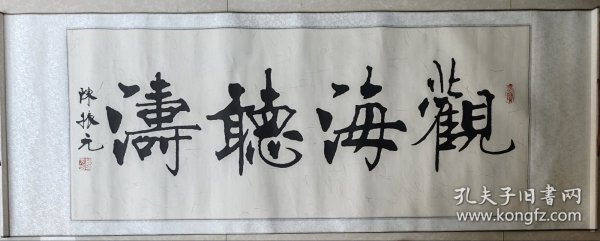 觀海聽濤
陳振元
孔夫子旧书网
www.kongfz.com